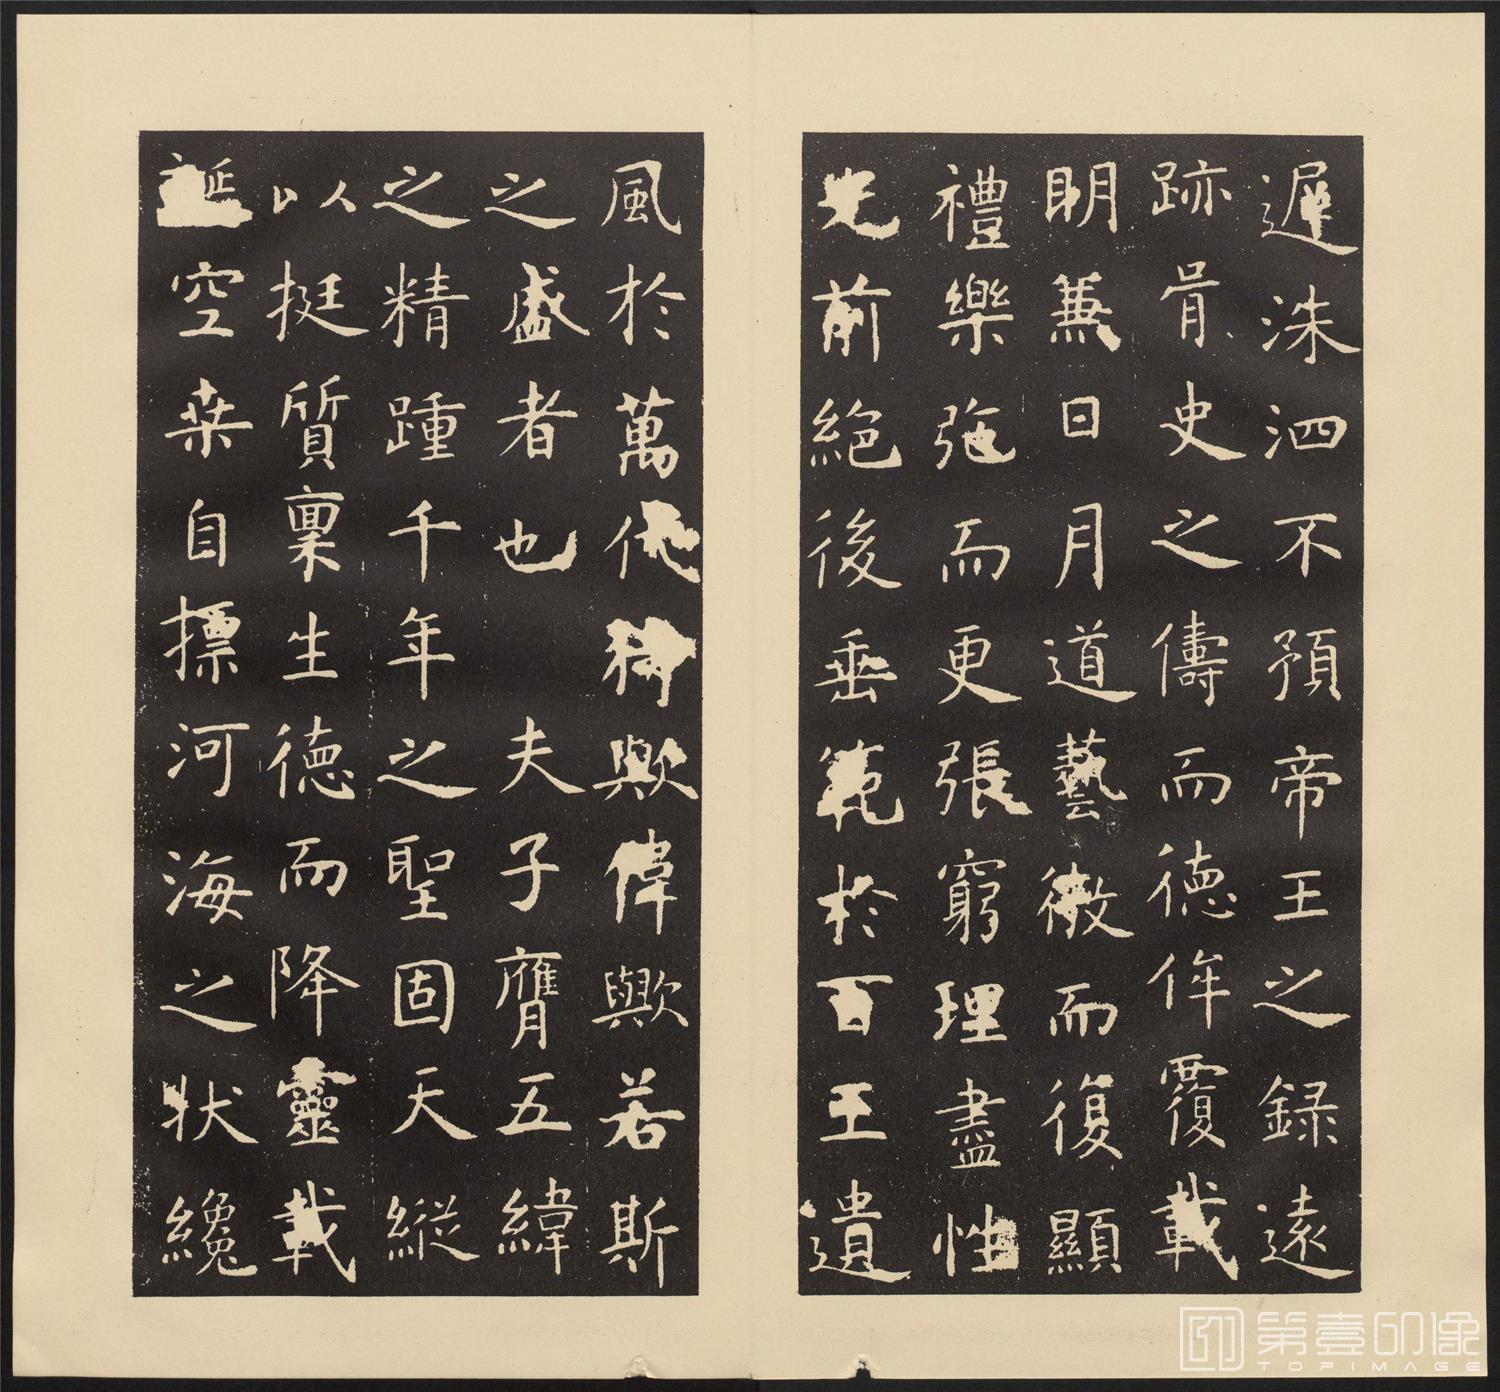 遲洙泗不預帝王之録遠
跡胥史之儔而德侔覆載
明兼日月道藝微而復顯
禮樂弛而更張窮理盡性
光前絕後垂範於百王遺
風於萬代猗歟偉歟若斯
之盛者也夫子膺五緯
之精踵千年之聖固天縱
以挺質稟生德而降靈載
誕空桑自摽河海之狀纔
第壹印像
TOPIMAGE